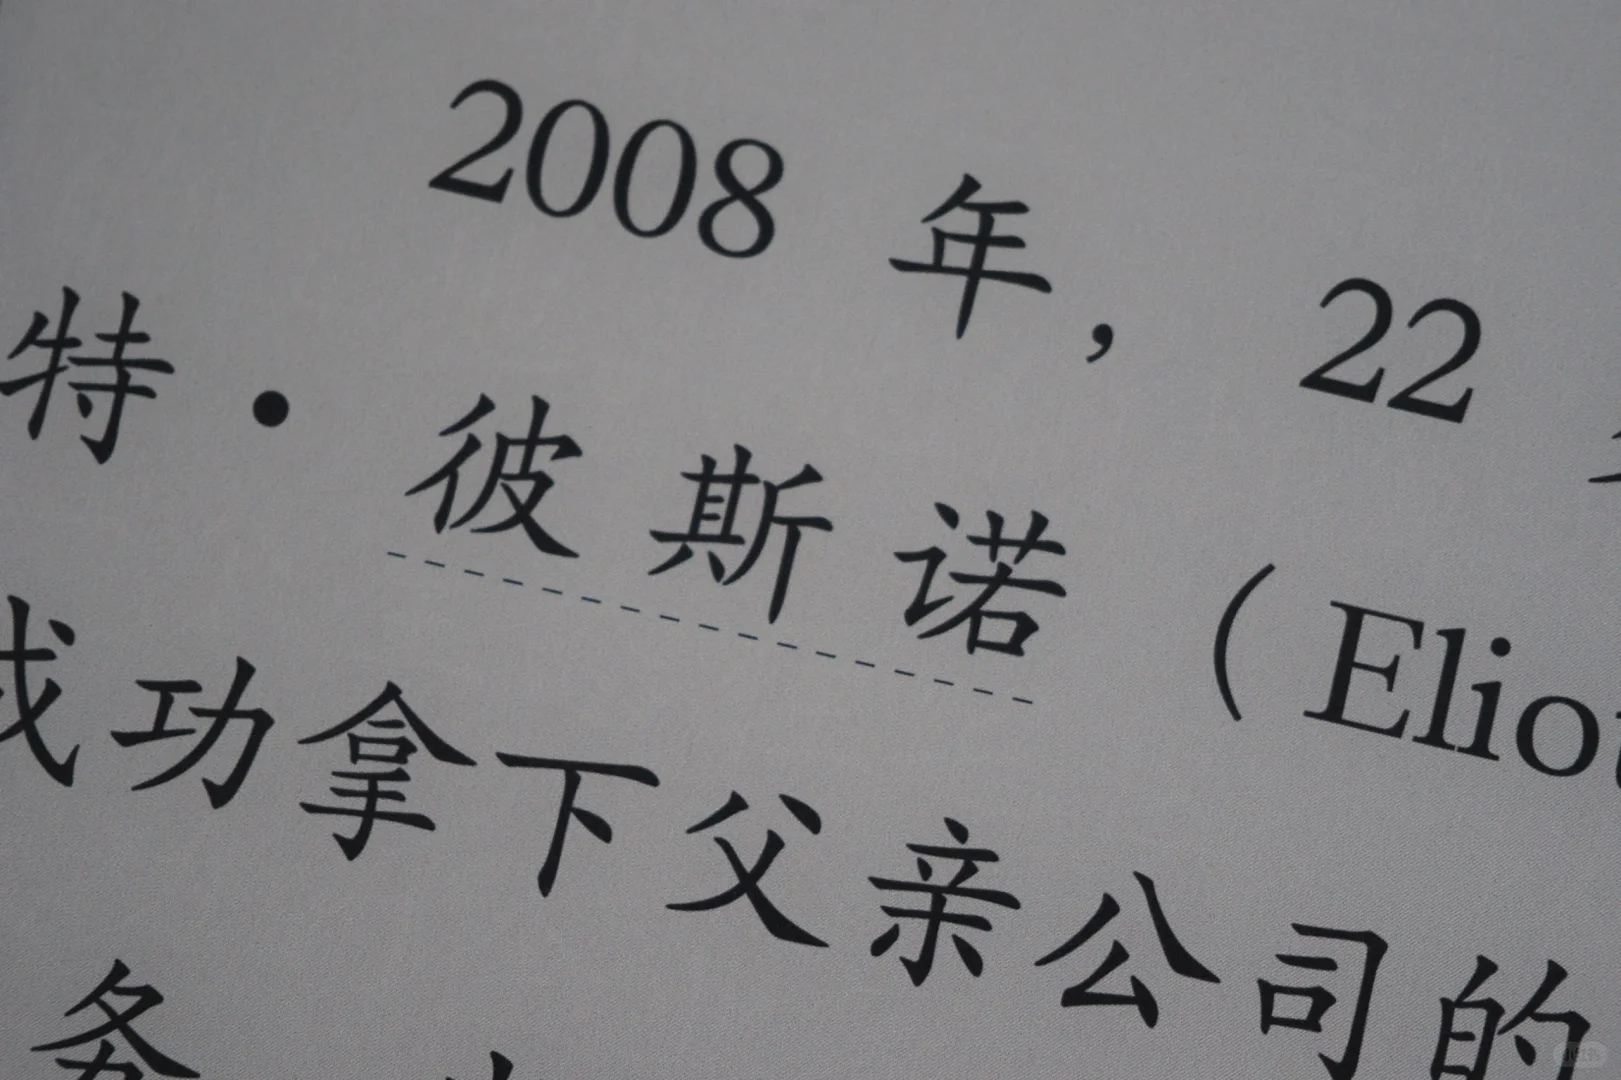 2008 年，22
特·彼斯诺（Eliot
成功拿下父亲公司的
务